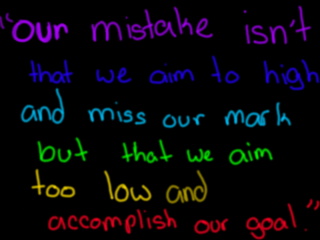 "our mistake isn't
that we aim to high
and miss our mark
but that we aim
too low and
accomplish our goal."